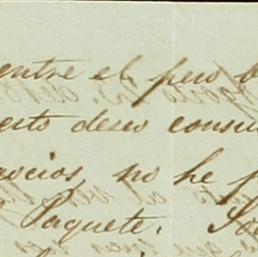 entre el pero
esto deseo consu
gocios, no he p
Paquete.